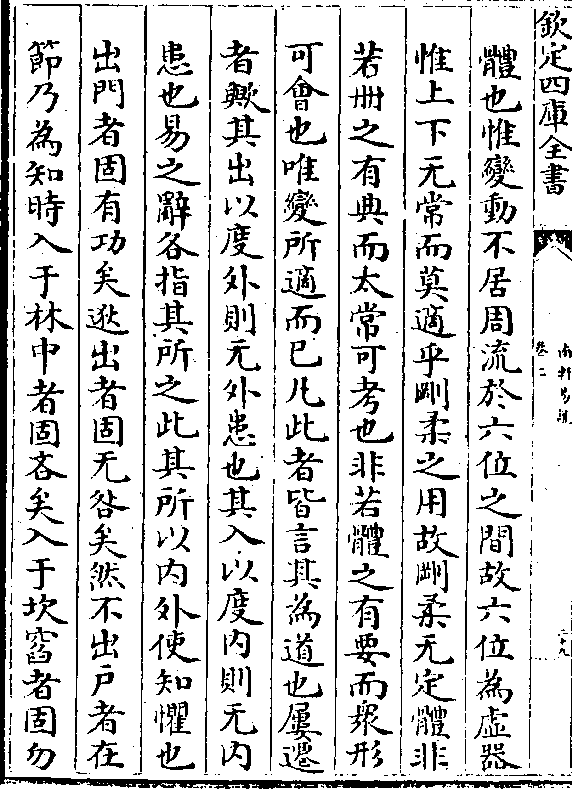 欽定四庫全書
南軒易說
卷二
二十九
體也惟變動不居周流於六位之間故六位為虚器
惟上下无常而莫適乎剛柔之用故剛柔无定體非
若冊之有典而太常可考也非若體之有要而衆形
可會也唯變所適而已凡此者皆言其為道也屢遷
者歟其出以度外則无外患也其入以度内則无内
患也易之辭各指其所之此其所以内外使知懼也
出門者固有功矣逖出者固无咎矣然不出戸者在
節乃為知時入于林中者固吝矣入于坎窞者固勿